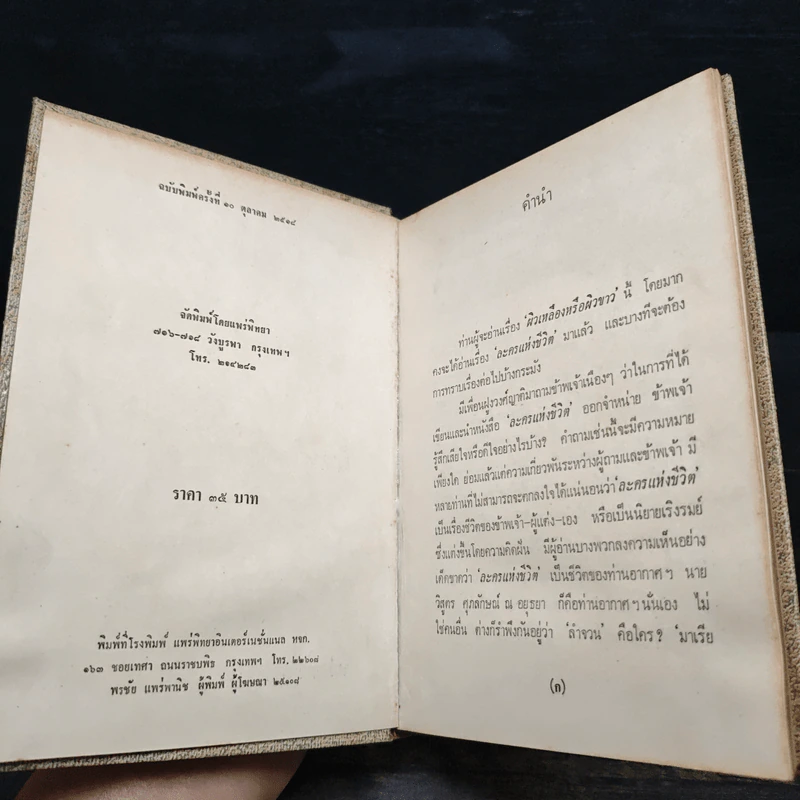 ฉบับพิมพ์ครั้งที่ ๑๐ ตุลาคม ๒๕๑๔
จัดพิมพ์โดยแพร่พิทยา
๗๑๖-๗๑๘ วังบูรพา กรุงเทพฯ
โทร. ๒๑๔๒๘๓
ราคา ๓๕ บาท
พิมพ์ที่โรงพิมพ์ แพร่พิทยาอินเตอร์เนชั่นแนล หจก.
๑๖๓ ซอยเทศา ถนนราชบพิธ กรุงเทพฯ โทร. ๒๒๖๐๘
พรชัย แพร่พานิช ผู้พิมพ์ ผู้โฆษณา ๒๕๑๐๘
คำนำ
ท่านผู้จะอ่านเรื่อง 'ผิวเหลืองหรือผิวขาว' นี้ โดยมาก
คงจะได้อ่านเรื่อง 'ละครแห่งชีวิต' มาแล้ว และบางทีจะต้อง
การทราบเรื่องต่อไปบ้างกระมัง
มีเพื่อนฝูงวงศ์ญาติมาถามข้าพเจ้าเนืองๆ ว่าในการที่ได้
เขียนและนำหนังสือ 'ละครแห่งชีวิต' ออกจำหน่าย ข้าพเจ้า
รู้สึกเสียใจหรือดีใจอย่างไรบ้าง? คำถามเช่นนี้จะมีความหมาย
เพียงใด ย่อมแล้วแต่ความเกี่ยวพันระหว่างผู้ถามและข้าพเจ้า มี
หลายท่านที่ไม่สามารถจะตกลงใจได้แน่นอนว่า 'ละครแห่งชีวิต'
เป็นเรื่องชีวิตของข้าพเจ้า-ผู้แต่ง-เอง หรือเป็นนิยายเริงรมย์
ซึ่งแต่งขึ้นโดยความคิดฝัน มีผู้อ่านบางพวกลงความเห็นอย่าง
เด็ดขาดว่า 'ละครแห่งชีวิต' เป็นชีวิตของท่านอากาศฯ นาย
วิสูตร ศุภลักษณ์ ณ อยุธยา ก็คือท่านอากาศฯ นั่นเอง ไม่
ใช่คนอื่น ต่างก็รำพึงกันอยู่ว่า 'ลำจวน' คือใคร? 'มาเรีย
(ก)